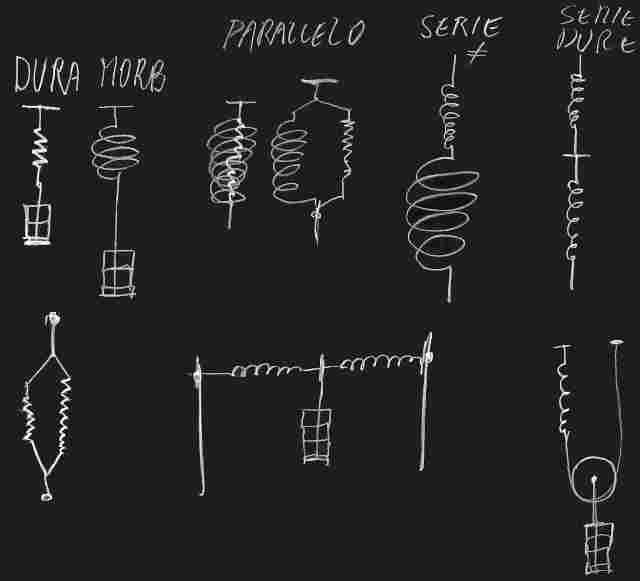 DURA
MORB
PARALLELO
SERIE
≠
SERIE
DURE